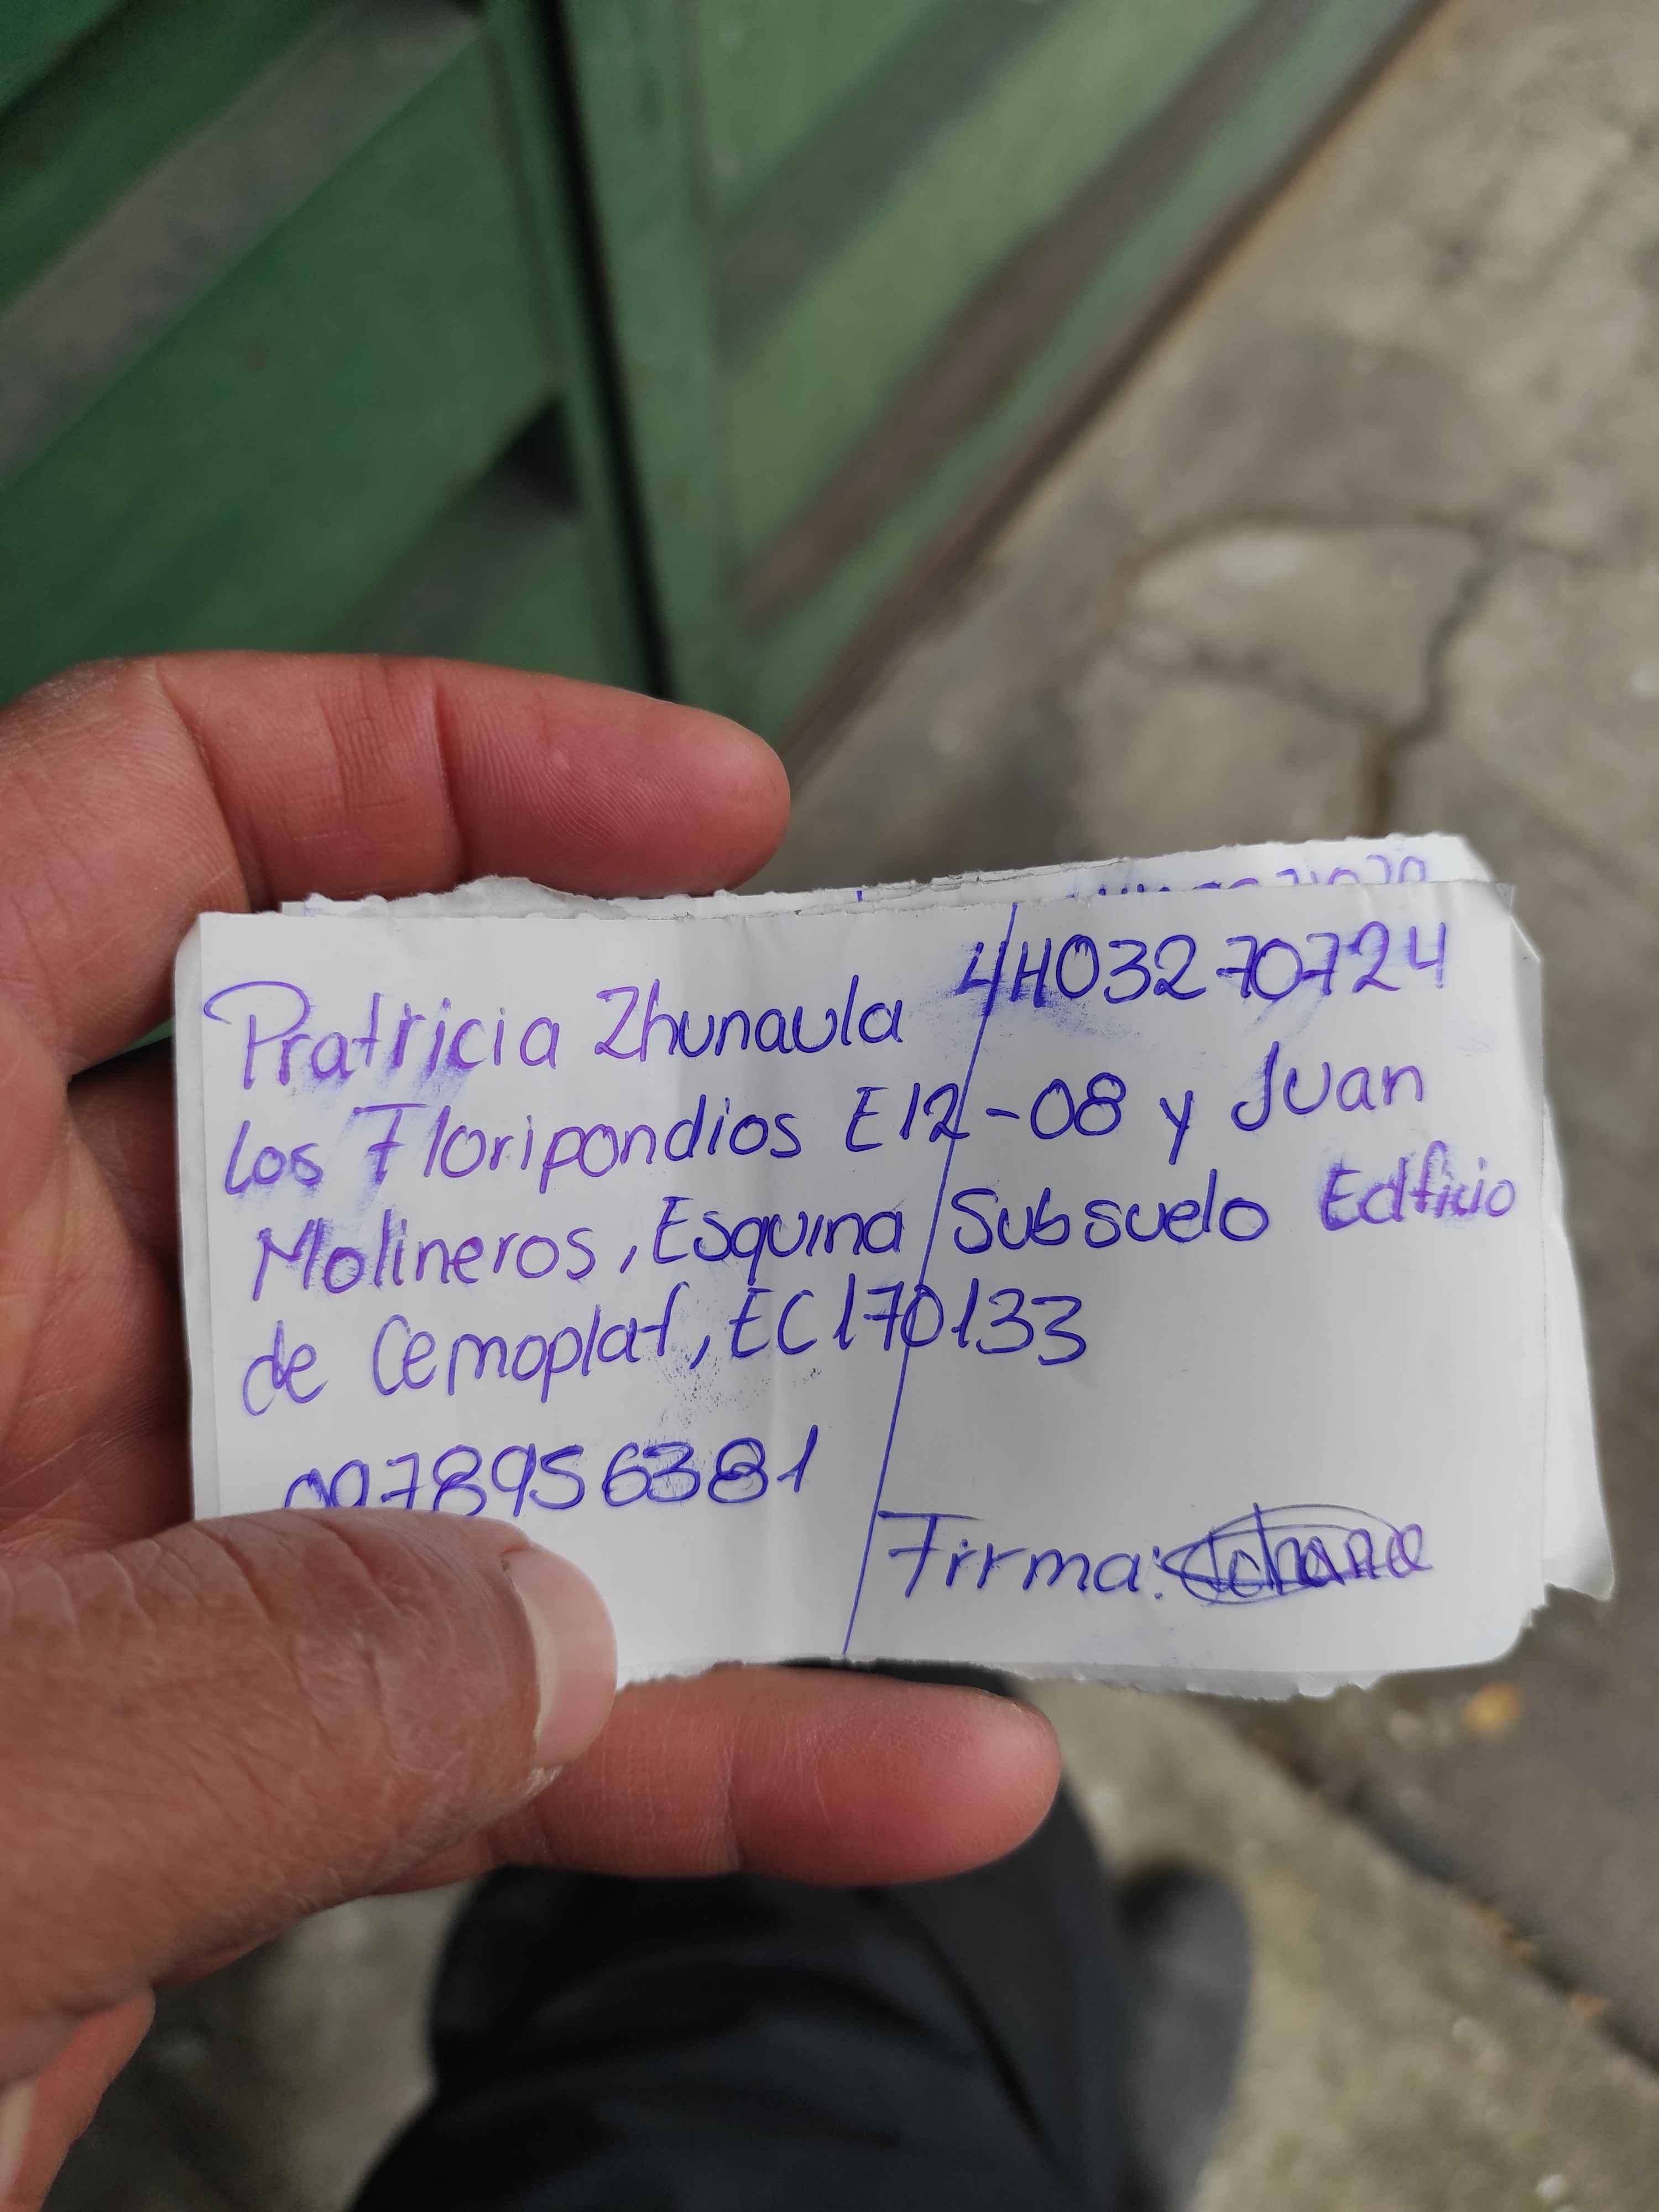 Pratricia Zhunaula 4H03270724
los Floripondios E12-08 y Juan
Molineros, Esquina Subsuelo Edificio
de Cemoplaf, EC170133
0978956381
Firma: